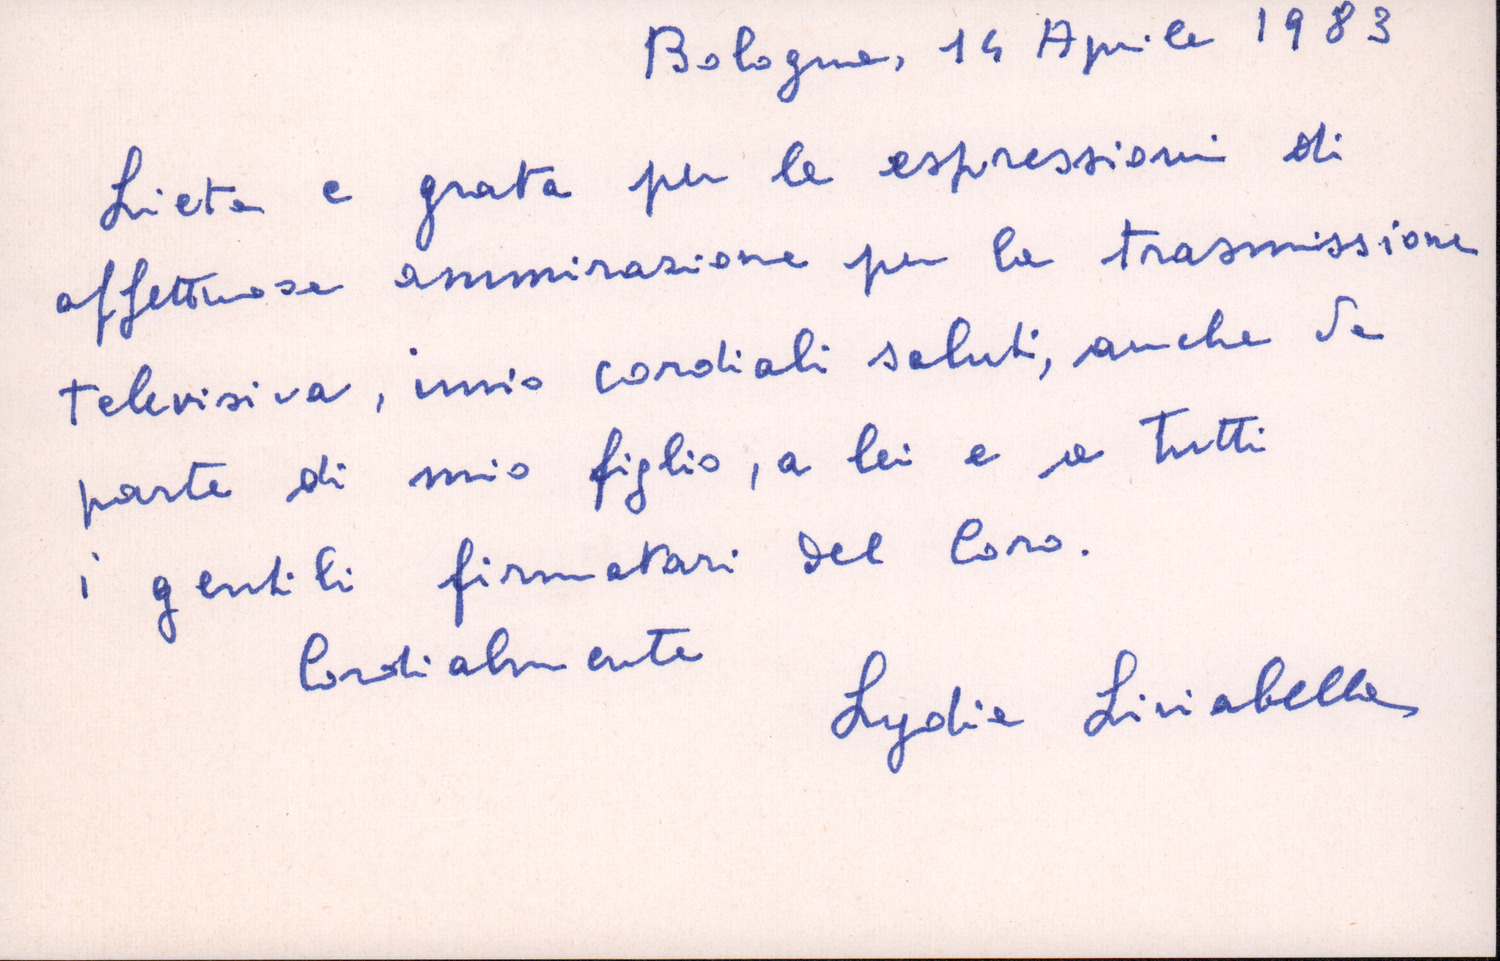 Bologna, 14 Aprile 1983
Lieta e grata per le espressioni di
affettuosa ammirazione per la trasmissione
televisiva, invio cordiali saluti, anche da
parte di mio figlio, a lei e a tutti
i gentili firmatari del Coro.
Cordialmente
Lydia Liviabella